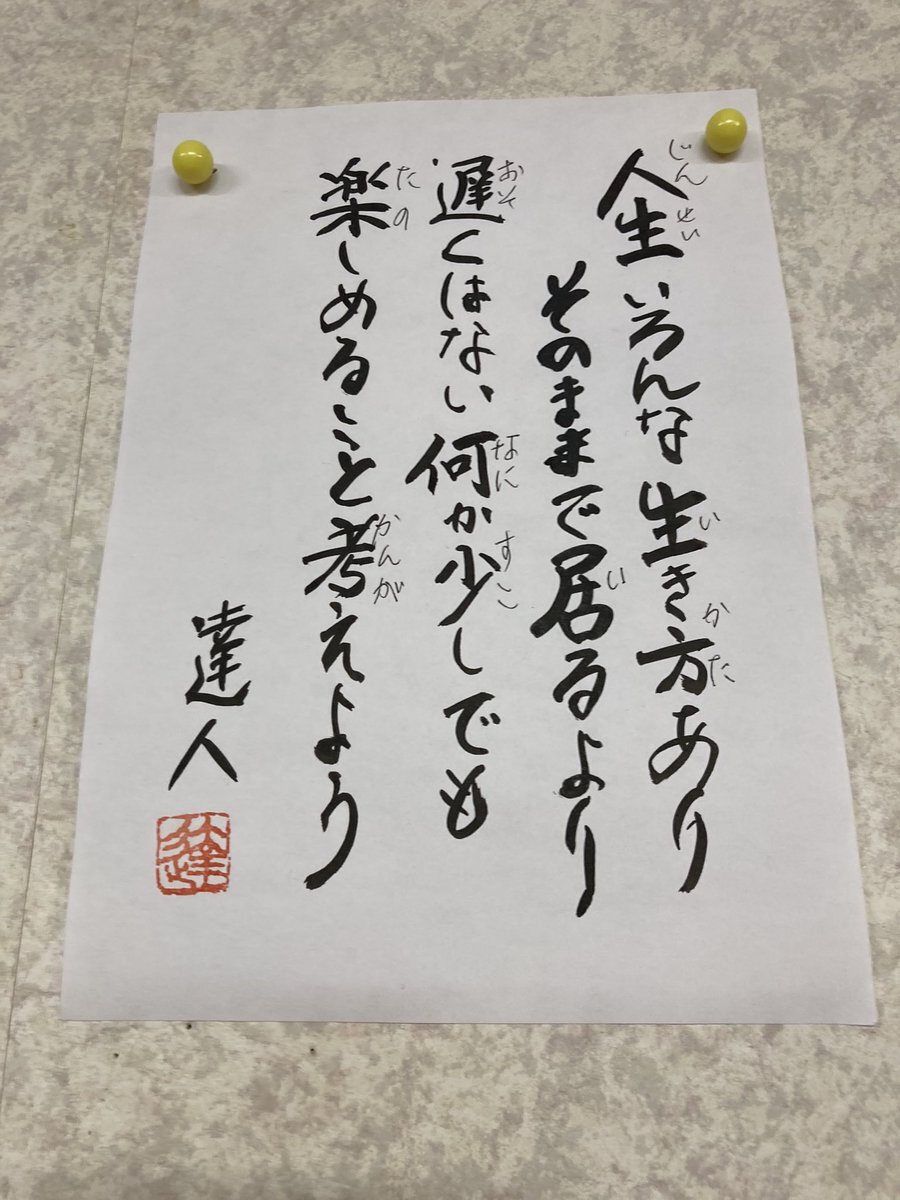 人生いろんな生き方あり
じんせい い かた
そのままで居るより
い
遅くはない何か少しでも
おそ なに すこ
楽しめること考えよう
たの かんが
達人
達